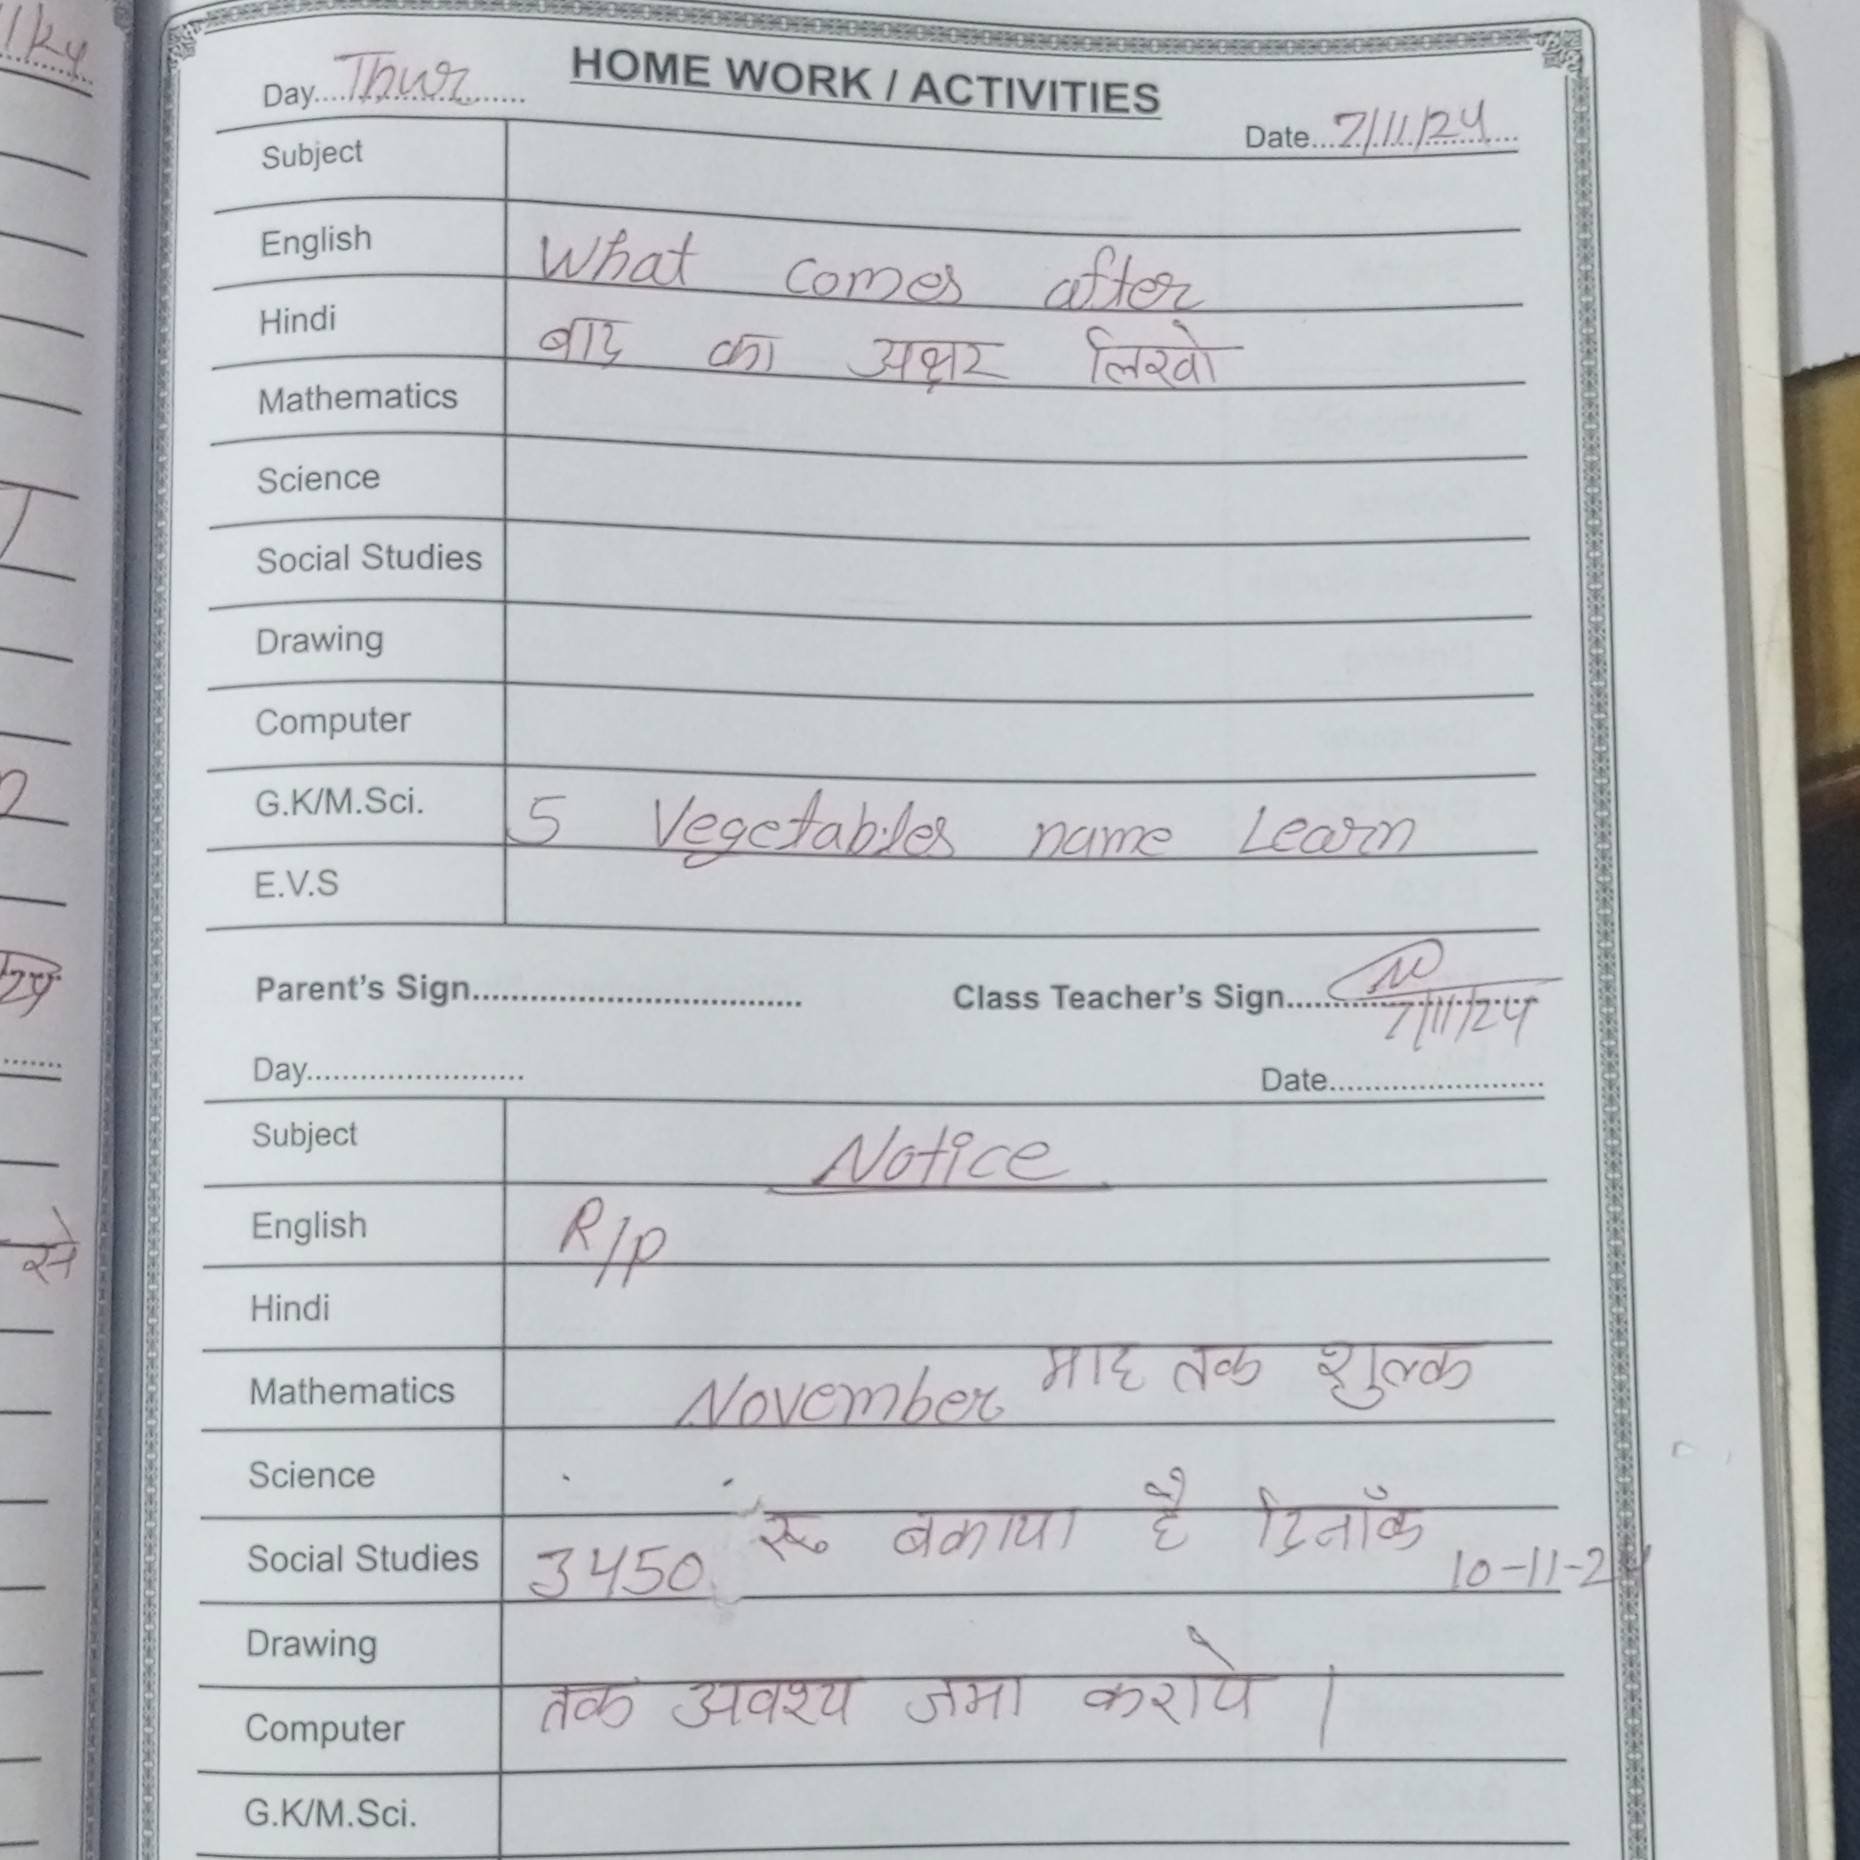 HOME WORK / ACTIVITIES
Day.... Thur
Date... 7/11/24
Subject
English What comes after
Hindi बाद का अक्षर लिखो
Mathematics
Science
Social Studies
Drawing
Computer
G.K/M.Sci. 5 Vegetables name Learn
E.V.S
Parent's Sign.................................. Class Teacher's Sign......
7/11/24
Day........................ Date........................
Subject Notice
English R/P
Hindi
Mathematics November माह तक शुल्क
Science
Social Studies 3450 रू बकाया है दिनाँक 10-11-24
Drawing
Computer तक अवश्य जमा कराये ।
G.K/M.Sci.